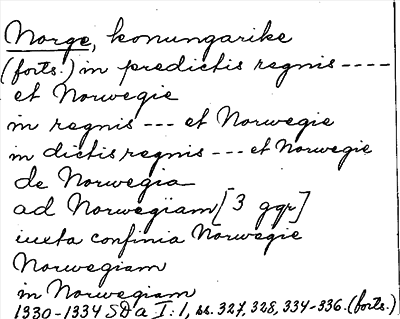 Norge, konungarike
(forts.) in predictis regnis ----
et Norwegie
in regnis --- et Norwegie
in dictis regnis --- et Norwegie
de Norwegia
ad Norwegiam [3 ggr]
iuxta confinia Norwegie
Norwegiam
in Norwegiam
1330-1334 SD a I:1, ss. 327, 328, 334-336. (forts.)